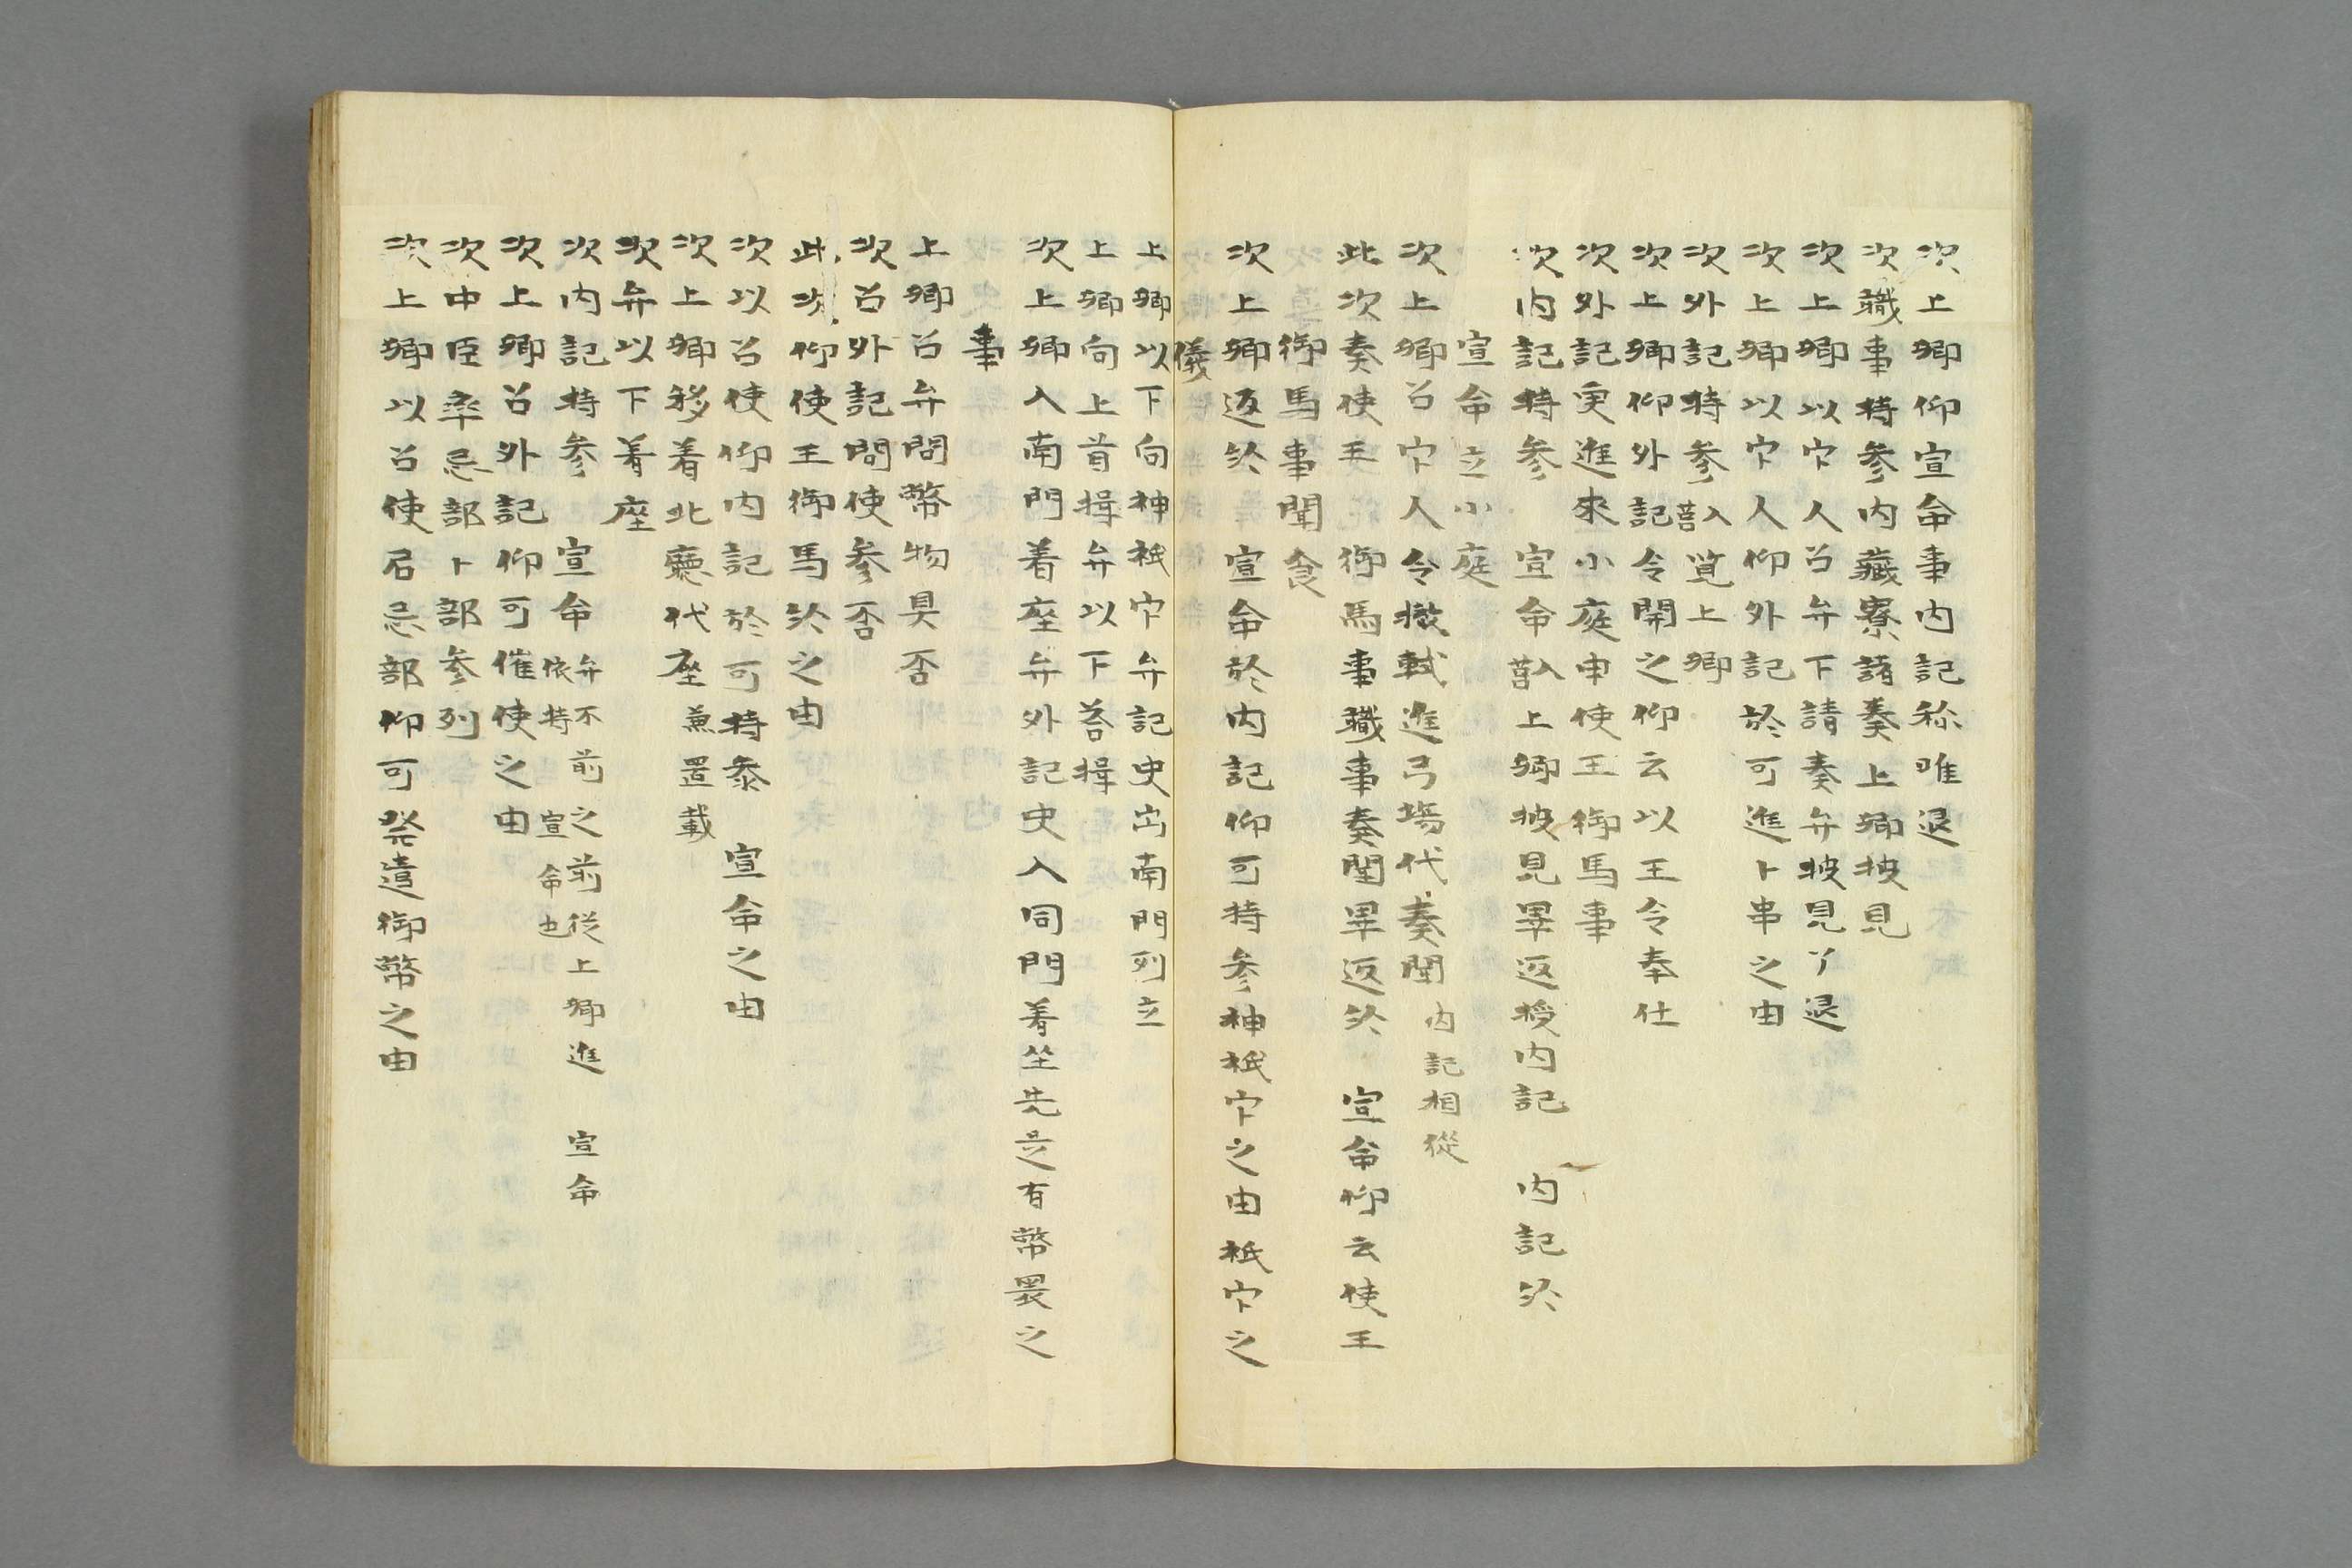 次上卿仰宣命事内記称唯退
次職事持参内藏寮請奏上卿披見
次上卿以官人召弁下請奏弁披見了退
次上卿以官人仰外記於可進卜串之由
次外記持参入筥覧上卿
次上卿仰外記令開之仰云以王令奉仕
次外記更進來小庭申使王御馬事
次内記持参 宣命入筥上卿披見畢返授内記 内記於
宣命立小庭
次上卿召官人令撤軾進弓場代奏聞内記相從
此次奏使王御馬事職事奏聞畢返給 宣命仰云使王
御馬事聞食
次上卿返給 宣命於内記仰可持参神祇官之由祇官之
儀
上卿以下向神祇官弁記史出南門列立
上卿向上首揖弁以下荅揖
次上卿入南門着座弁外記史入同門着坐先是有幣褁之
事
上卿召弁問幣物具否
次召外記問使参否
此次仰使王御馬給之由
次以召使仰内記於可持参 宣命之由
次上卿移着北廳代座兼置載
次弁以下着座
次内記持参 宣命弁不前之前從上卿進 宣命
依持 宣命也
次上卿召外記仰可催使之由
次中臣率忌部卜部参列
次上卿以召使召忌部仰可発遣御幣之由